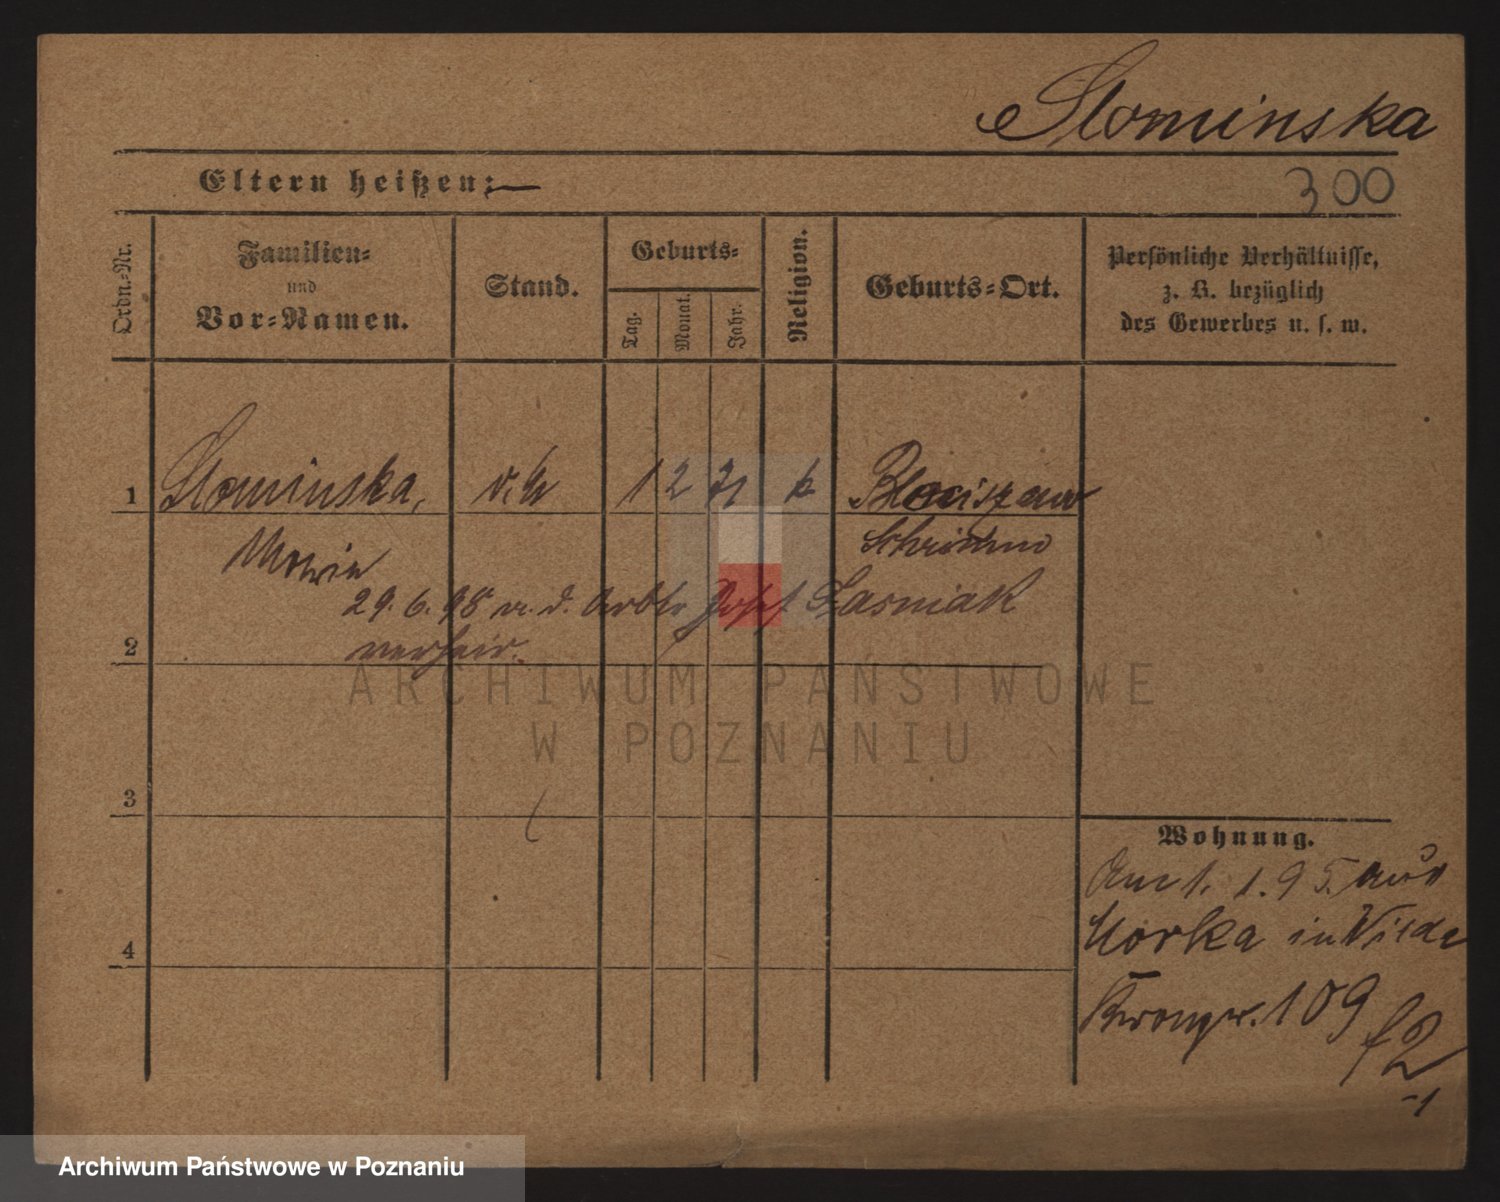 Slominska
Eltern heißen: —
300
Ordn.-Nr.
Familien-
und
Vor-Namen.
Stand.
Geburts-
Tag.
Monat.
Jahr.
Religion.
Geburts-Ort.
Persönliche Verhältnisse,
z. B. bezüglich
des Gewerbes u. s. w.
1 Slominska, 1 2 71 k
Schrimm
29. 6. 98 m. d. Arbtr Josef Lasniak
verheir.
2
3
4
Wohnung.
Am 1. 1. 95. aus
Kronprz. 109
ARCHIWUM PAŃSTWOWE
W POZNANIU
Archiwum Państwowe w Poznaniu